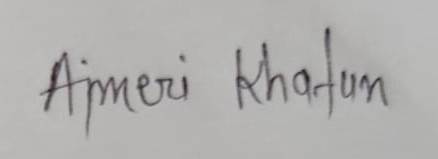 Ajmeri Khatun